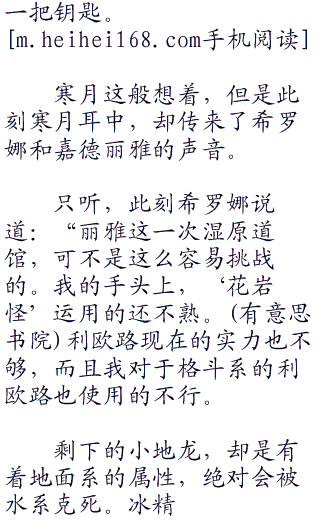 一把钥匙。
[m.heihei168.com手机阅读]
寒月这般想着，但是此
刻寒月耳中，却传来了希罗
娜和嘉德丽雅的声音。
只听，此刻希罗娜说
道：“丽雅这一次湿原道
馆，可不是这么容易挑战
的。我的手头上，‘花岩
怪’运用的还不熟。(有意思
书院)利欧路现在的实力也不
够，而且我对于格斗系的利
欧路也使用的不行。
剩下的小地龙，却是有
着地面系的属性，绝对会被
水系克死。冰精